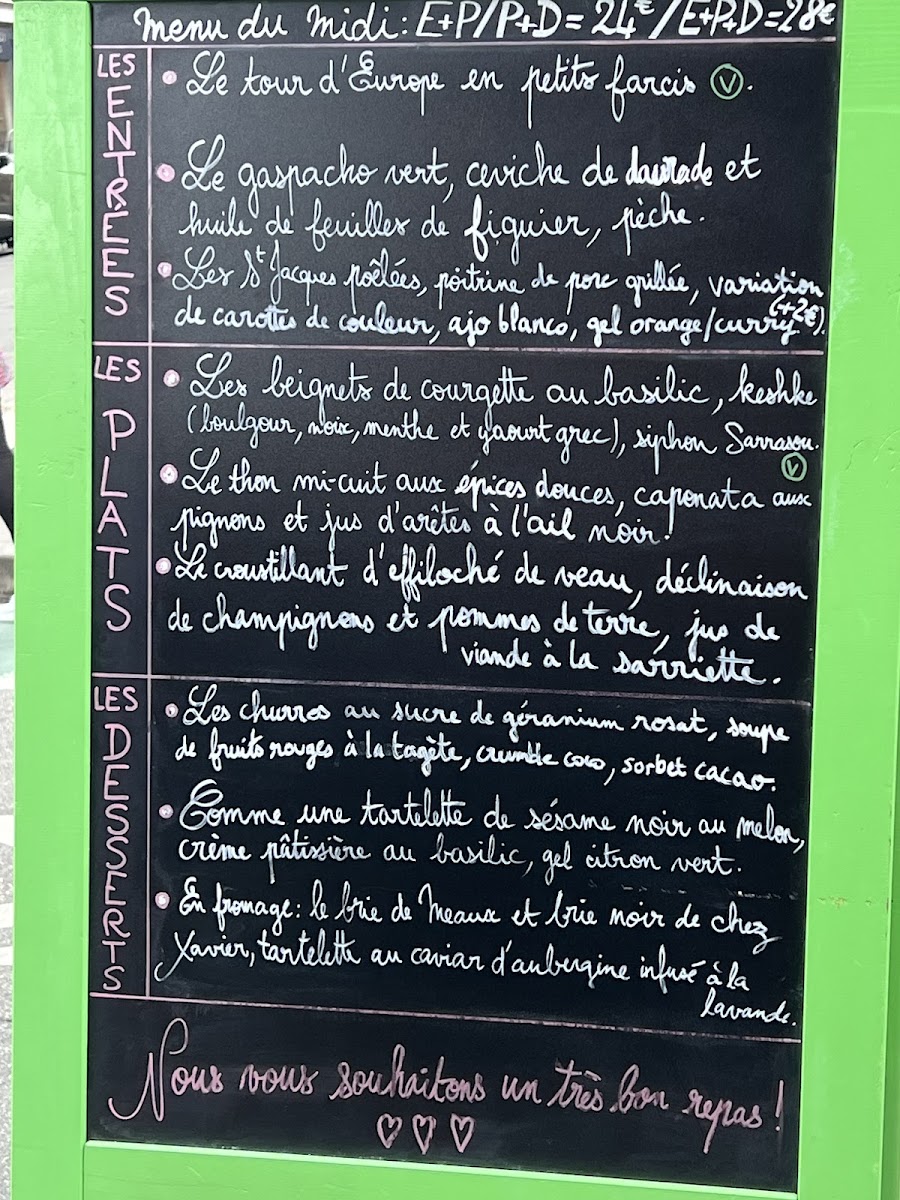 menu du midi: E+P/P+D = 24€ / E+P+D = 28€
LES ENTRÉES
• Le tour d'Europe en petits farcis Ⓥ.
• Le gaspacho vert, ceviche de daurade et
huile de feuilles de figuier, pêche.
• Les St Jacques poêlées, poitrine de porc grillée, variation
de carottes de couleur, ajo blanco, gel orange/curry (+2€).
LES PLATS
• Les beignets de courgette au basilic, keshke
(boulgour, noix, menthe et yaourt grec), siphon Sarrasou.
Ⓥ
• Le thon mi-cuit aux épices douces, caponata aux
pignons et jus d'arêtes à l'ail noir.
• Le croustillant d'effiloché de veau, déclinaison
de champignons et pommes de terre, jus de
viande à la sarriette.
LES DESSERTS
• Les churros au sucre de géranium rosat, soupe
de fruits rouges à la tagète, crumble coco, sorbet cacao.
• Comme une tartelette de sésame noir au melon,
crème pâtissière au basilic, gel citron vert.
• En fromage: le brie de Meaux et brie noir de chez
Xavier, tartelette au caviar d'aubergine infusé à la
lavande.
Nous vous souhaitons un très bon repas!
♡♡♡